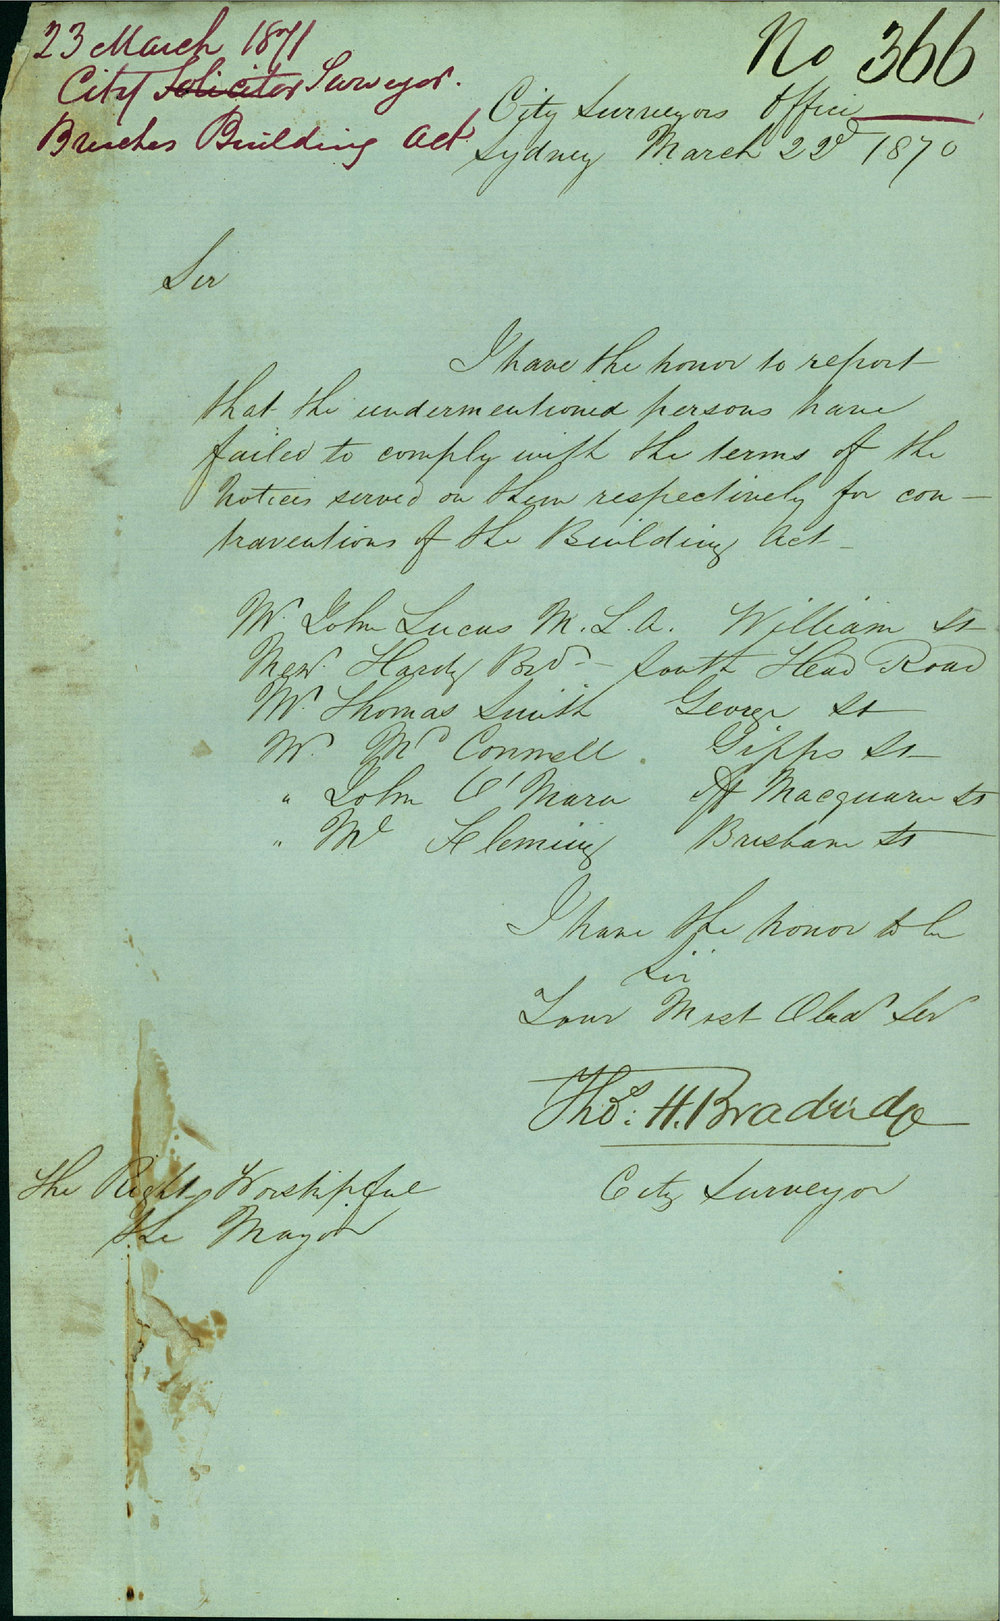 23 March 1871
City Solicitor Surveyor.
Breaches Building Act
No 366
City Surveyors Office
Sydney March 22d 1870
Sir
I have the honor to report
that the undermentioned persons have
failed to comply with the terms of the
Notices served on them respectively for con-
traventions of the Building Act-
Mr. John Lucas M.L.A. William St
Messrs. Hardy Bros - South Head Road
Mr. Thomas Smith George St
Mr. Mc Connell. Gipps St
" John O'Mara Macquarie St
" Mc Fleming Brisbane St
I have the honor to be
Sir
Your Most Obedt Ser
Thos: H. Bradridge
City Surveyor
The Right Worshipful
the Mayor